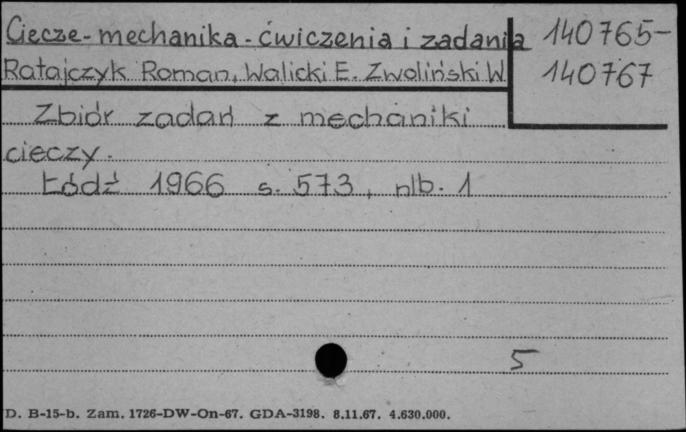 Ciecze - mechanika - ćwiczenia i zadania 140765-
Ratajczyk Roman, Walicki E. Zwoliński W. 140767
Zbiór zadań z mechaniki
cieczy.
Łódź 1966 s. 573, nlb. 1
5
D. B-15-b. Zam. 1726-DW-On-67. GDA-3198. 8.11.67. 4.630.000.